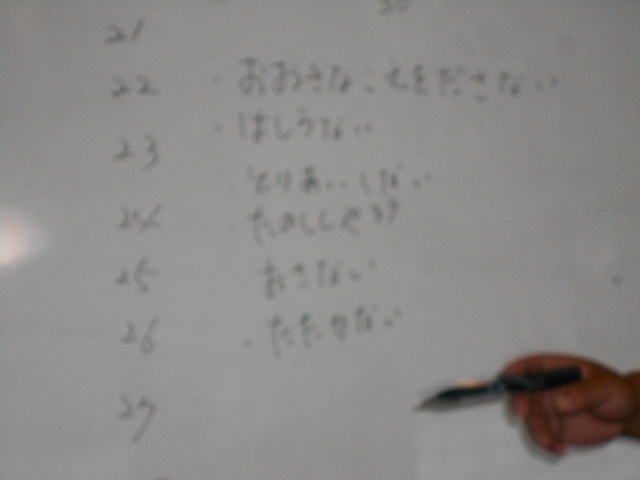 30
21
22 ・おおきなこえをださない
・はしらない
23
・とりあいしない
24 ・たのしくやる
25 おさない
26 ・たたかない
27